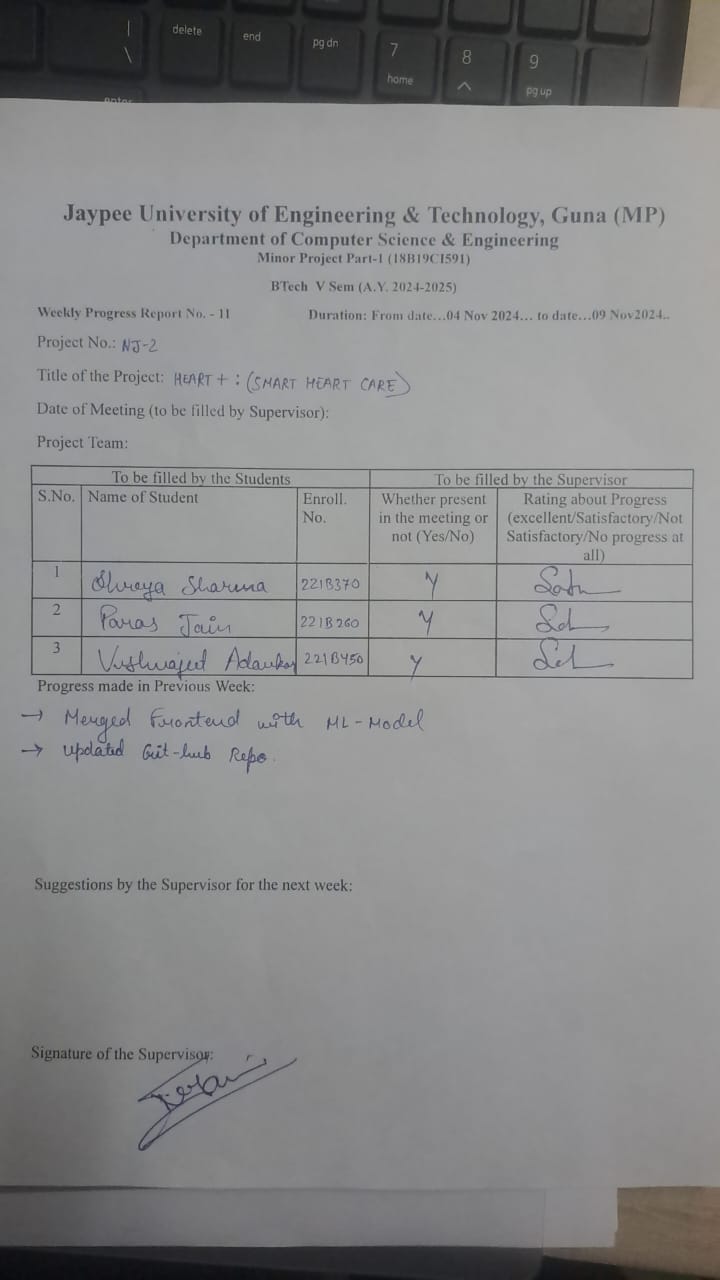 |
\
delete
end
pg dn
7
home
8
^
9
pg up
enter
Jaypee University of Engineering & Technology, Guna (MP)
Department of Computer Science & Engineering
Minor Project Part-I (18B19CI591)
BTech V Sem (A.Y. 2024-2025)
Weekly Progress Report No. - 11 Duration: From date...04 Nov 2024... to date...09 Nov2024..
Project No.: NJ-2
Title of the Project: HEART + : (SMART HEART CARE)
Date of Meeting (to be filled by Supervisor):
Project Team:
To be filled by the Students To be filled by the Supervisor
S.No. Name of Student Enroll. No. Whether present in the meeting or not (Yes/No) Rating about Progress (excellent/Satisfactory/Not Satisfactory/No progress at all)
1 Shreya Sharma 221B370 Y
2 Paras Jain 221B260 Y
3 Vishwajeet 221B450 Y
Progress made in Previous Week:
→ Merged Frontend with ML-Model
→ Updated Git-hub Repo.
Suggestions by the Supervisor for the next week:
Signature of the Supervisor: